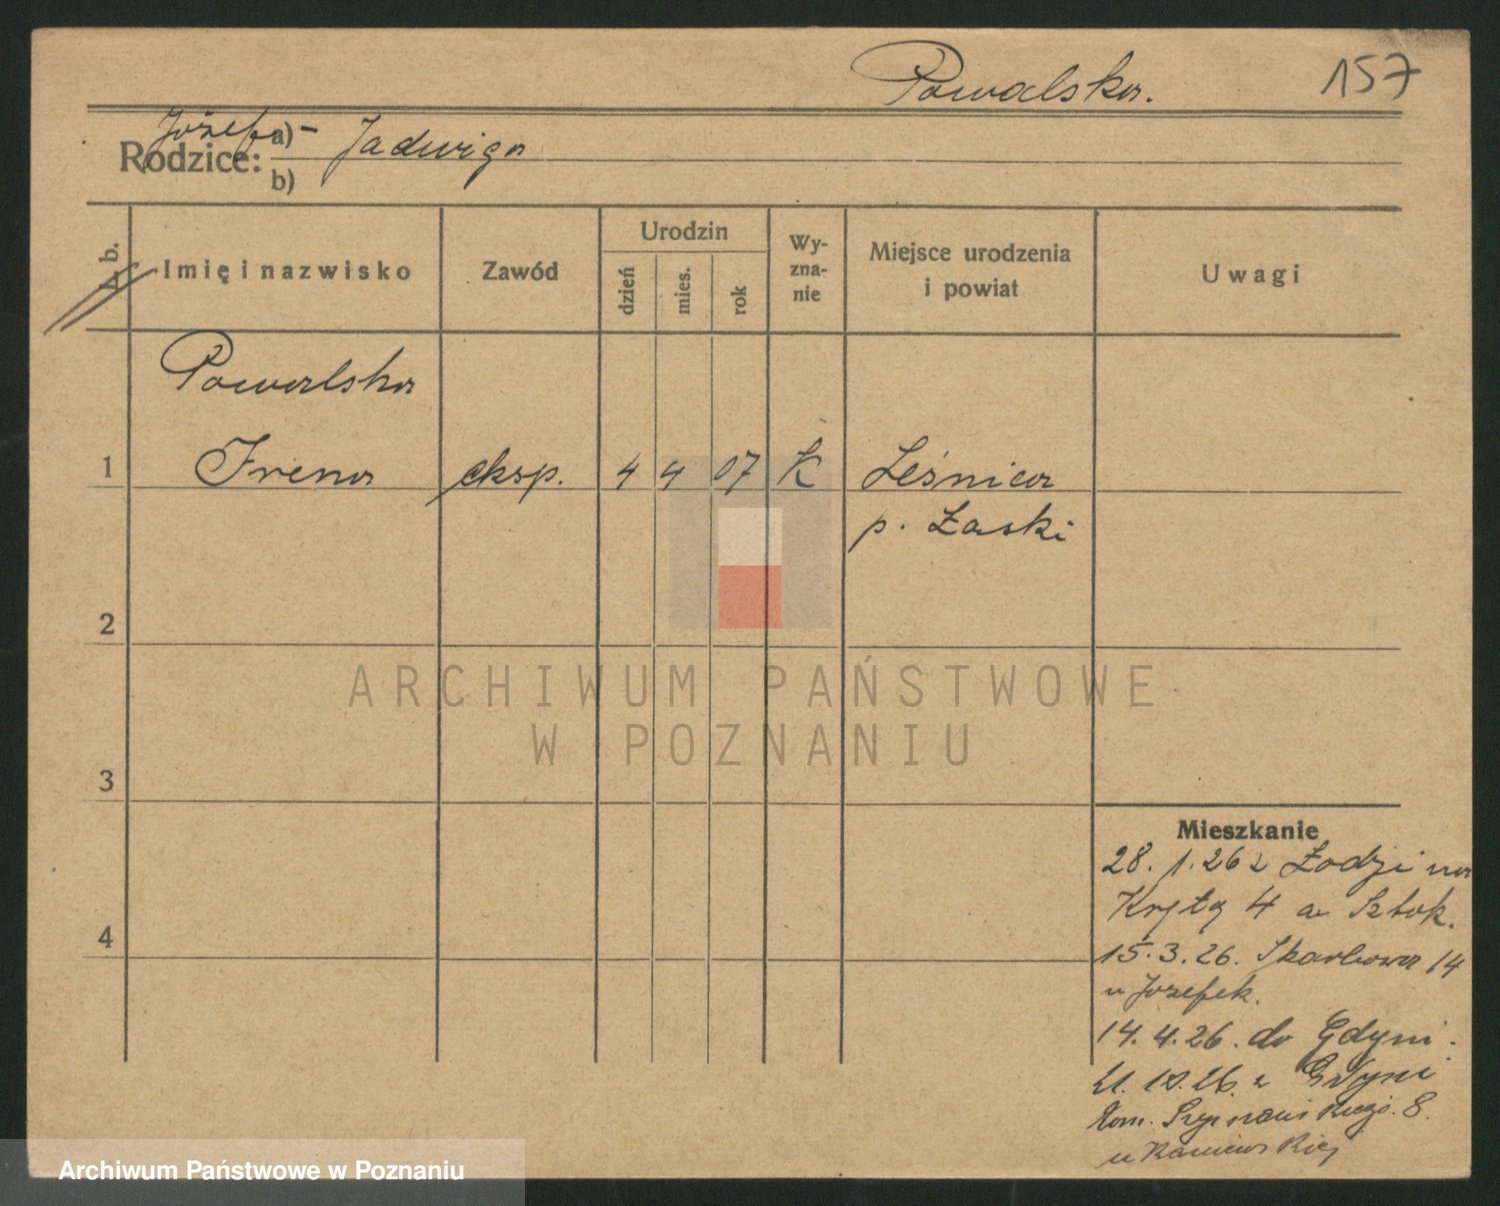 Powalska.
157
Rodzice: a) Józefa - Jadwiga
b)
L. b.
Imię i nazwisko
Zawód
Urodzin
dzień
mies.
rok
Wy-
zna-
nie
Miejsce urodzenia
i powiat
Uwagi
Powalska
1 Irena eksp. 4 4 07 K Leśnica
p. Łaski
2
3
4
ARCHIWUM PAŃSTWOWE
W POZNANIU
Mieszkanie
28. 1. 26 z Łodzi na
Krętą 4 a Sztok.
15. 3. 26. Skarbowa 14
u Józefek.
14. 4. 26. do Gdyni.
21. 10. 26. z Gdyni
8.
u
Archiwum Państwowe w Poznaniu